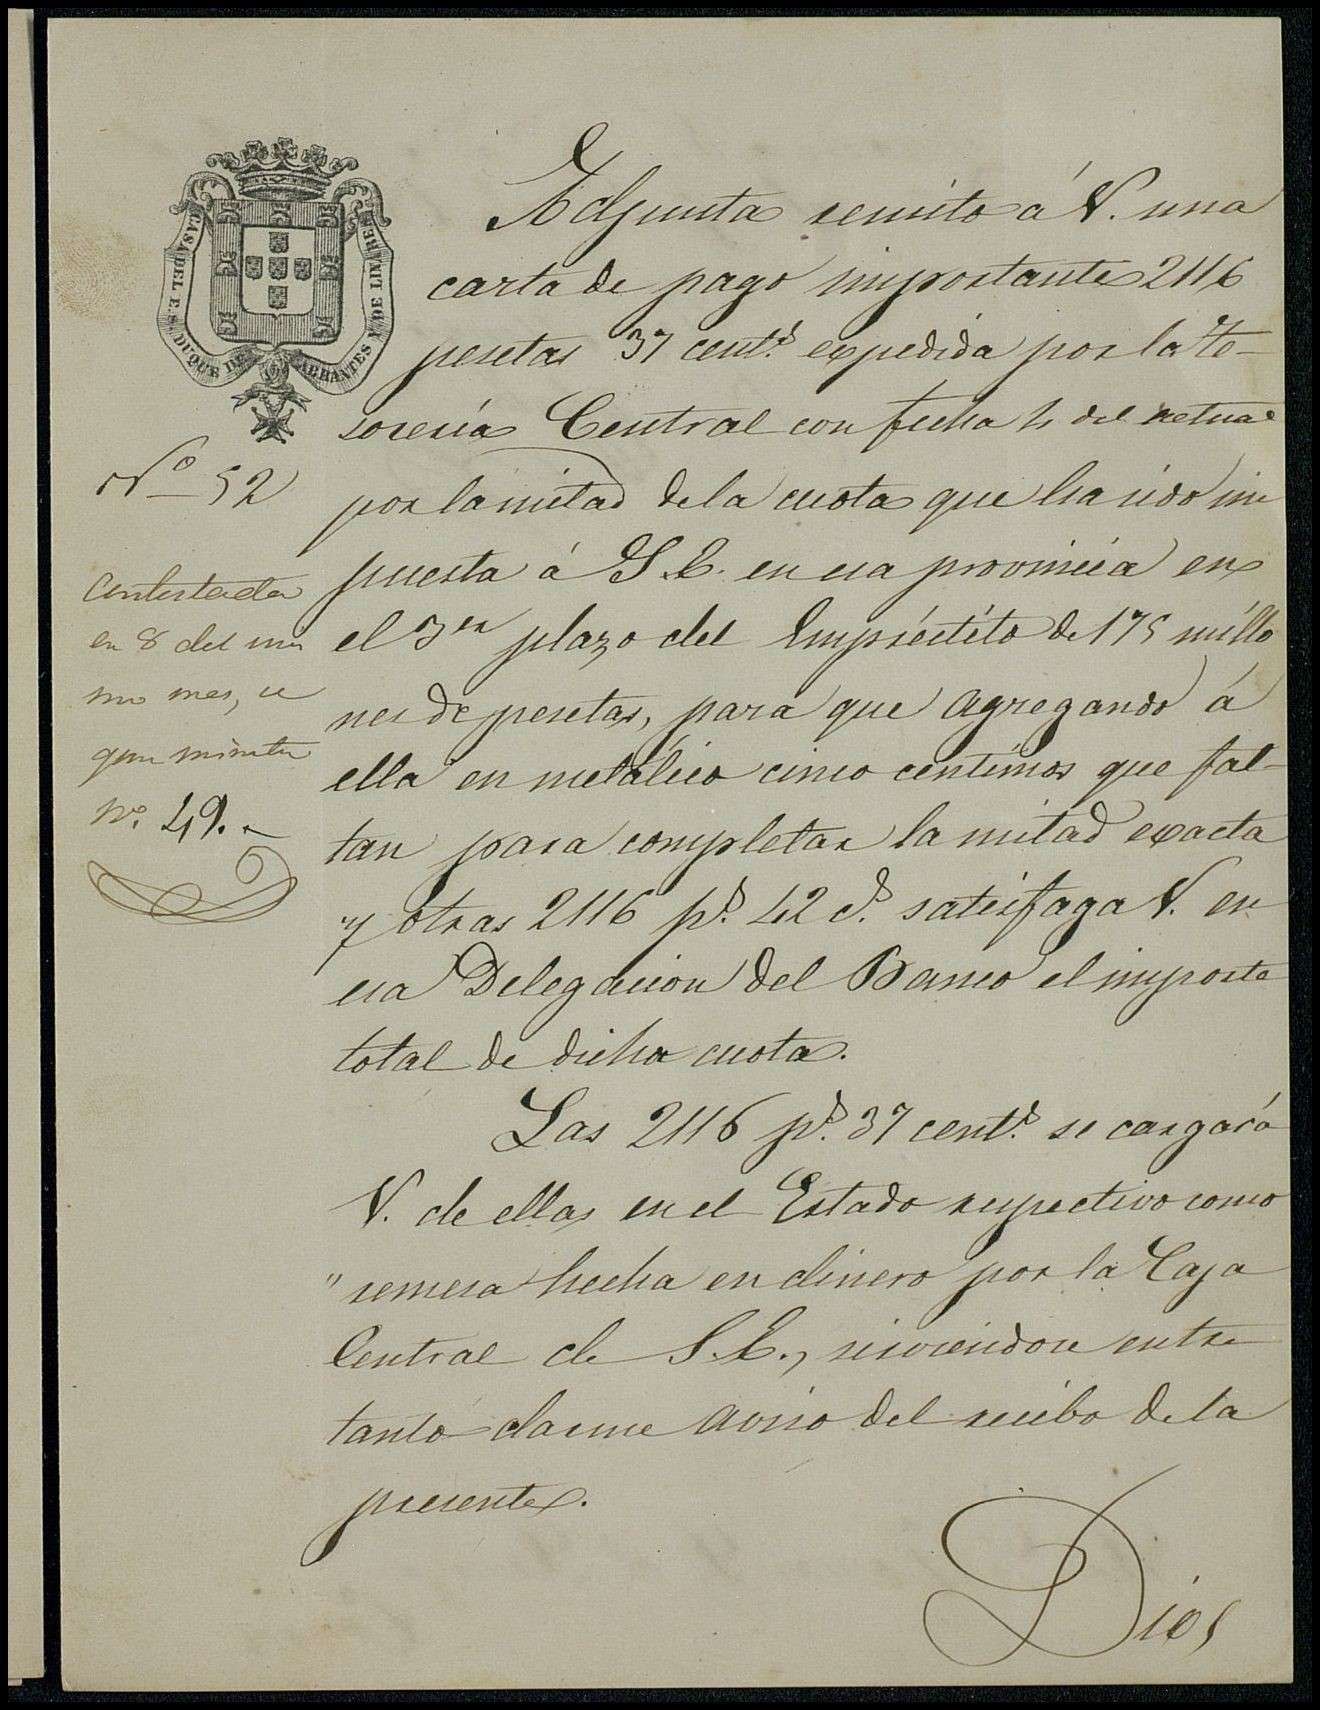 CASA DEL E.S. DUQUE DE ABRANTES Y DE LINARES
Nº 52
Contestada
en 8 del mis
mo mes, se
gun minuta
nº. 49.
Adjunta remito á V. una
carta de pago importante 2116
pesetas 37 cent.s expedida por la Te-
sorería Central con fecha 4 del actual
por la mitad de la cuota que ha sido im
puesta á S.E. en esa provincia en
el 3er plazo del Empréstito de 175 millo
nes de pesetas, para que agregando á
ella en metálico cinco centimos que fal-
tan para completar la mitad exacta
y otras 2116 p.s 42 c.s satisfaga V. en
esa Delegacion del Banco el importe
total de dicha cuota.
Las 2116 p.s 37 cent.s se cargará
V. de ellas en el Estado respectivo como
" remesa hecha en dinero por la Caja
Central de S.E., sirviendose entre
tanto darme aviso del recibo de la
presente.
Dios